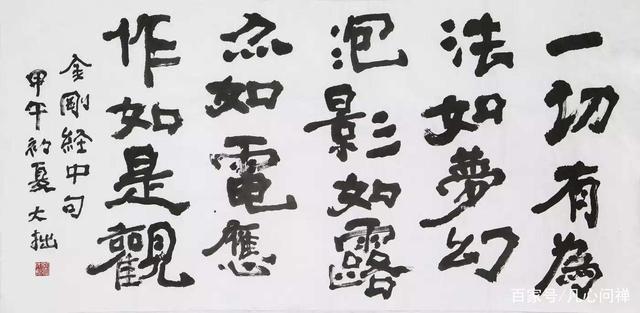 一切有為
法如夢幻
泡影如露
亦如電應
作如是觀
金剛経中句
甲午初夏大拙
百家号/凡心问禅